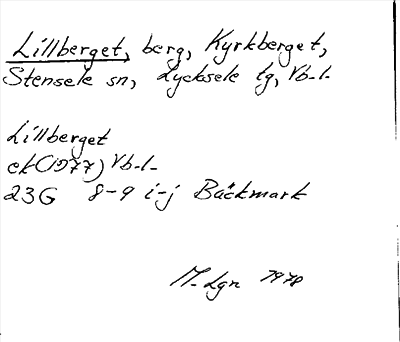 Lillberget, berg, Kyrkberget,
Stensele sn, Lycksele lg, Vb-l-
Lillberget
ek(1977) Vb-l-
23G 8-9 i-j Bäckmark
M-Lgn 1978